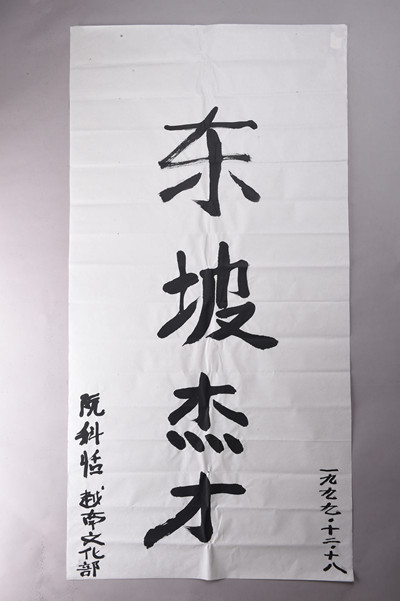 一九九九·十二·十八
东坡杰才
阮科恬 越南文化部